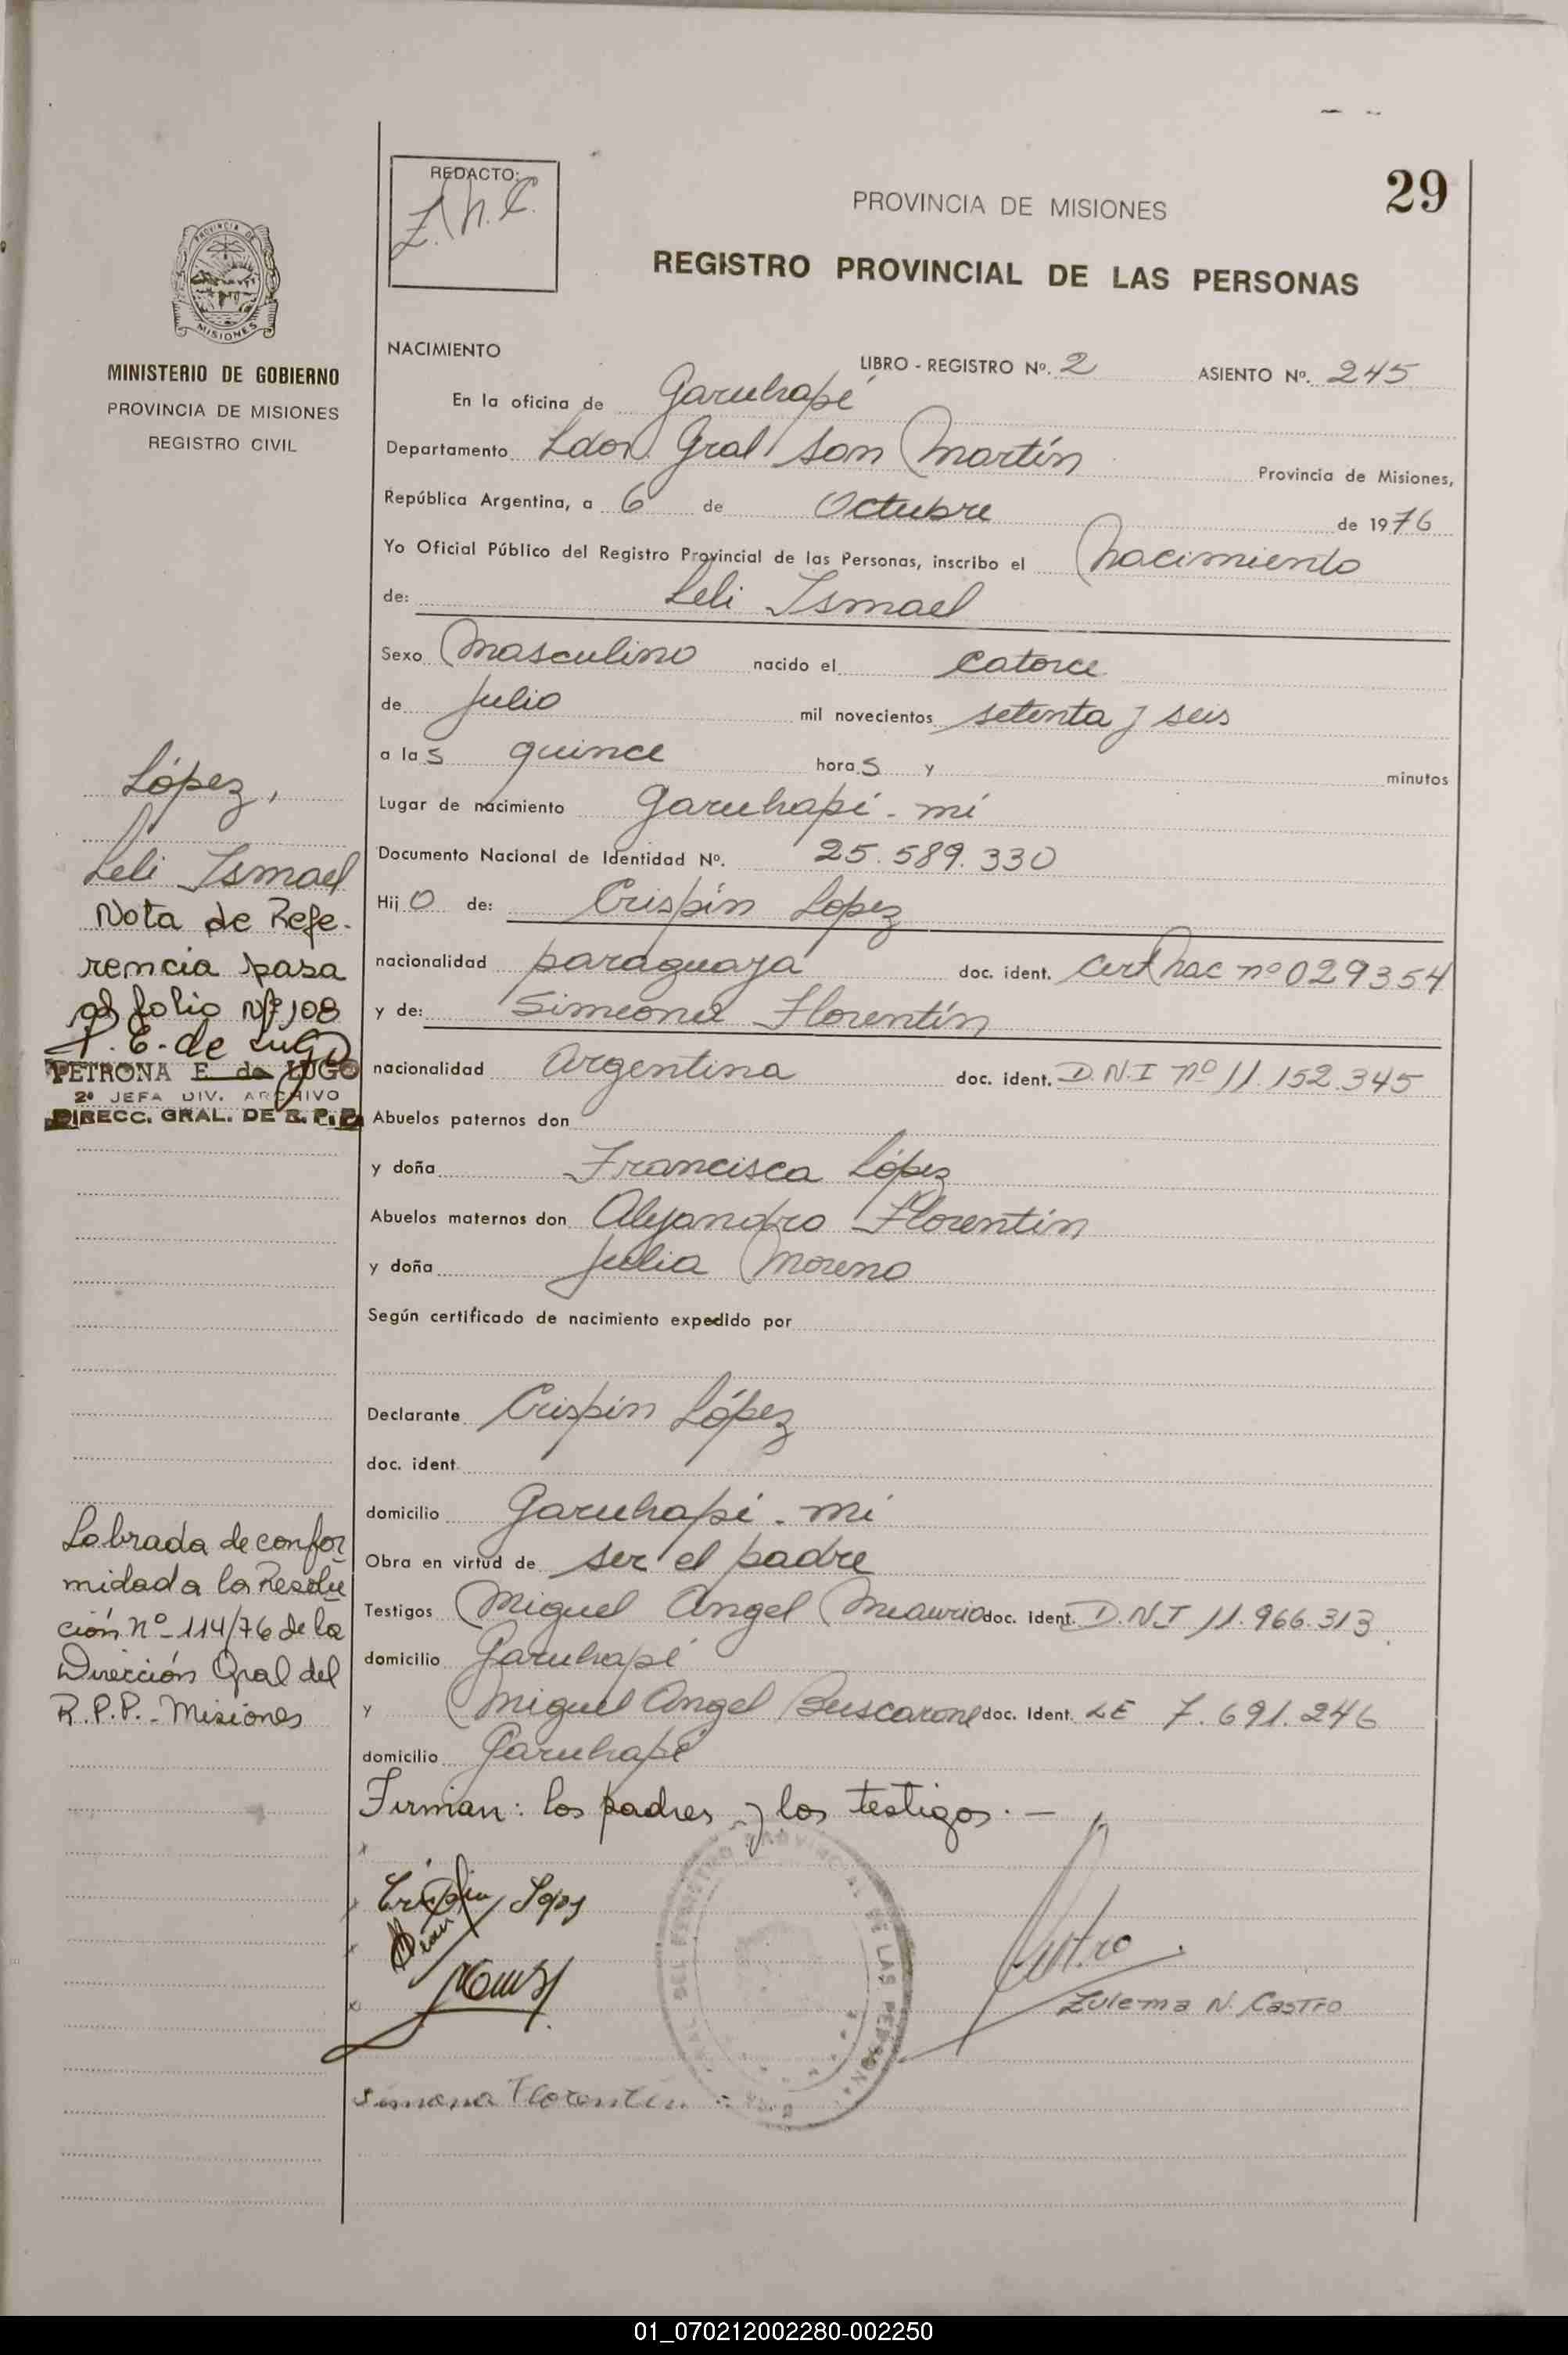 29
REDACTO:
Z.N.C.
PROVINCIA DE MISIONES
REGISTRO PROVINCIAL DE LAS PERSONAS
PROVINCIA DE
MISIONES
MINISTERIO DE GOBIERNO
PROVINCIA DE MISIONES
REGISTRO CIVIL
López,
Leli Ismael
Nota de Refe-
rencia pasa
al folio Nº 108
P. E. de Lugo
PETRONA E. de LUGO
2ª JEFA DIV. ARCHIVO
DIRECC. GRAL. DE R. P. P.
Labrada de confor
midad a la Resolu
ción nº 114/76 de la
Dirección Gral del
R.P.P. - Misiones
NACIMIENTO LIBRO - REGISTRO Nº. 2 ASIENTO Nº. 245
En la oficina de Garuhapé
Departamento Ldor. Gral San Martín Provincia de Misiones,
República Argentina, a 6 de Octubre de 1976
Yo Oficial Público del Registro Provincial de las Personas, inscribo el Nacimiento
de: Leli Ismael
Sexo Masculino nacido el catorce
de julio mil novecientos setenta y seis
a las quince horas y minutos
Lugar de nacimiento Garuhapé - mí
Documento Nacional de Identidad Nº. 25.589.330
Hijo de: Crispín Lopez
nacionalidad paraguaya doc. ident. Cert Nac nº 029354
y de: Simeona Florentín
nacionalidad Argentina doc. ident. D.N.I nº 11.152.345
Abuelos paternos don
y doña Francisca López
Abuelos maternos don Alejandro Florentín
y doña Julia Moreno
Según certificado de nacimiento expedido por
Declarante Crispín López
doc. ident.
domicilio Garuhapé - mí
Obra en virtud de ser el padre
Testigos Miguel Angel doc. ident. D.N.I 11.966.313
domicilio Garuhapé
y Miguel Angel Buscarone doc. ident. LE 7.691.246
domicilio Garuhapé
Firman: los padres y los testigos. -
Crispin Lopez
Castro
Zulema N. Castro
Florentin
01_070212002280-002250